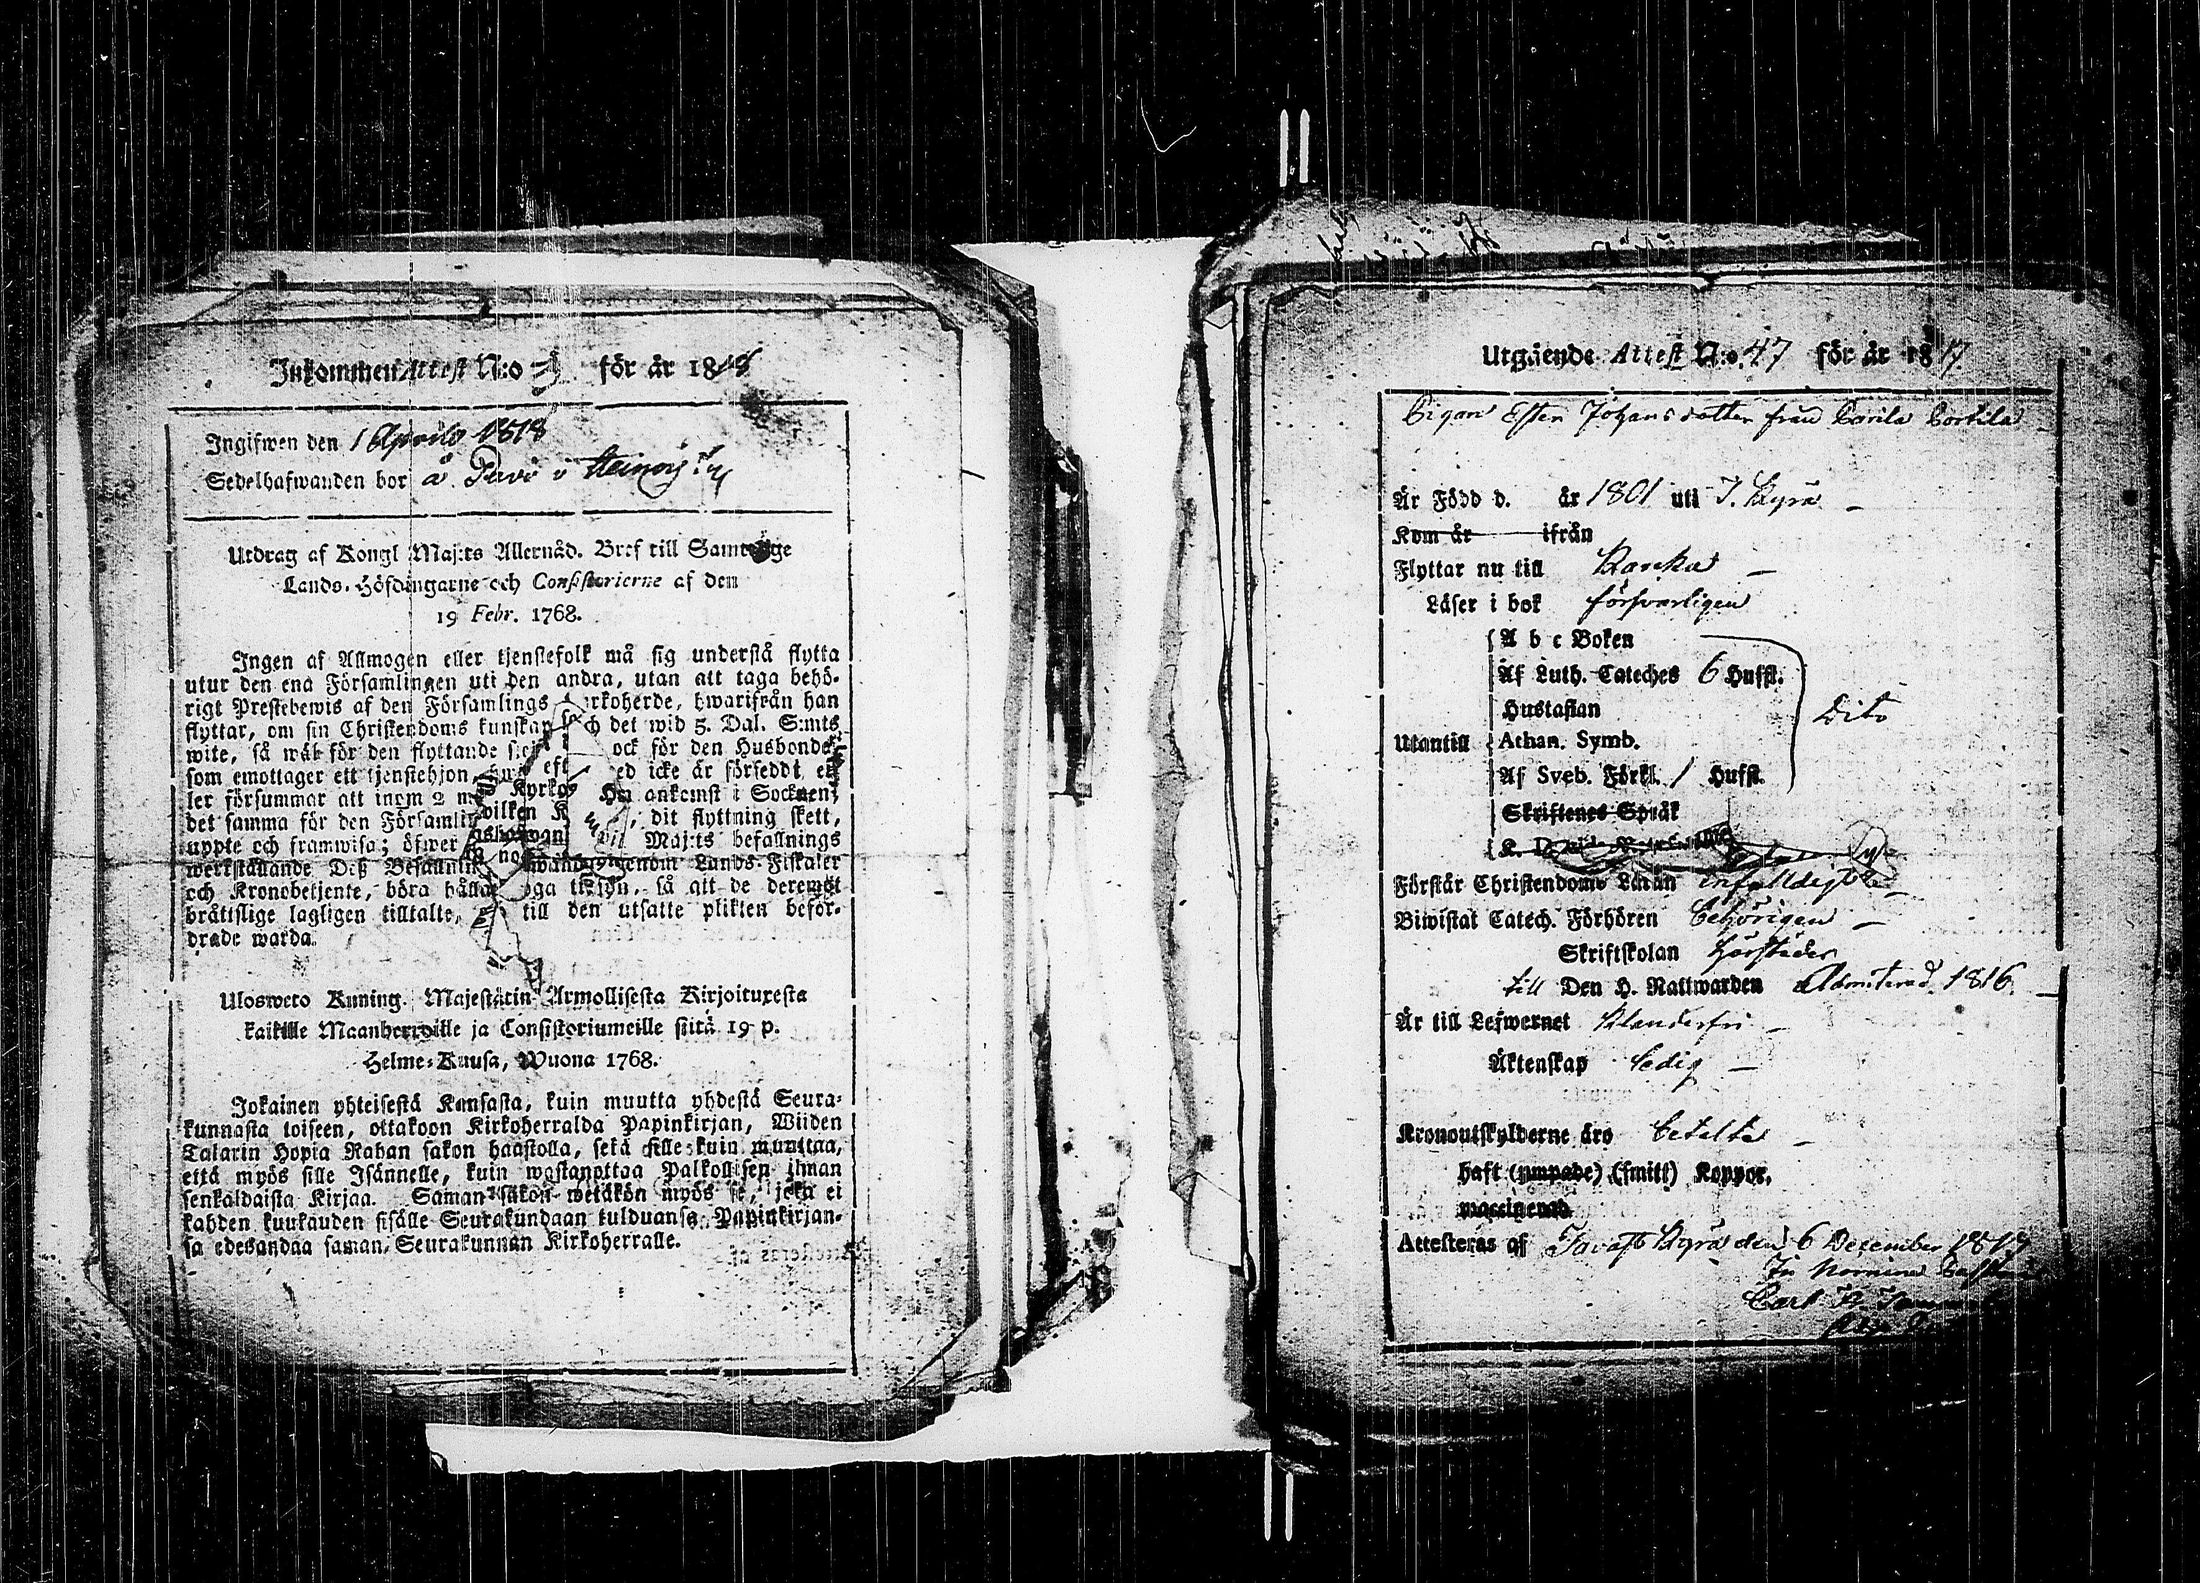 Inkommen Attest N:o 3 för år 1818
Ingifwen den 1 Aprilis 1818
Sedelhafwanden bor å Pavi i
Utdrag af Kongl Maj:ts Allernåd. Bref till Samtelige
Lands-Höfdingarne och Consistorierne af den
19 Febr. 1768.
Ingen af Allmogen eller tjenstefolk må sig understå flytta
utur den ena Församlingen uti den andra, utan att taga behö-
rigt Prestebewis af den Församlings rkoherde, hwarifrån han
flyttar, om sin Christendoms kunskap och det wid 5. Dal. S:mts
wite, så wäl för den flyttande ock för den Husbonde,
som emottager ett tjenstehjon, ed icke är försedt, el-
ler försummar att inom 2 ankomst i Socknen,
det samma för den Församling dit flyttning skett,
uppte och framwisa; öfwer Maj:ts befallnings
werkställande Deß Befallnings genom Lands-Fiskaler
och Kronobetjente, böra hålla noga tilsyn, så att de deremot
bråttslige lagligen tilltalte, till den utsatte plikten befor-
drade warda.
Ulosweto Kuning. Majestätin Armollisesta Kirjoituxesta
kaikille Maanherroille ja Consistoriumeille siitä 19 p.
Helme-Kuusa, Wuona 1768.
Jokainen yhteisestä Kansasta, kuin muutta yhdestä Seura-
kunnasta toiseen, ottakoon Kirkoherralda Papinkirjan, Wiiden
Talarin Hopia Rahan sakon haastolla, sekä sille kuin muuttaa,
että myös sille Isännelle, kuin wastanottaa Palkollisen ilman
senkaldaista Kirjaa. Saman sakon wetäkön myös se, joka ei
kahden kuukauden sisälle Seurakundaan tulduansa, Papinkirjan-
sa edesandaa saman Seurakunnan Kirkoherralle.
Utgående Attest N:o 47 för år 1817.
Pigan Ester Johansdotter från
Är Född d. år 1801 uti T. Kyrö
Kom år ifrån
Flyttar nu till Karku
Läser i bok försvarligen
A b c Boken
Af Luth. Cateches 6 Hufst.
Hustaflan
Utantill Athan. Symb. Dito
Af Sveb. Förkl. 1 Hufst.
Skriftenes Språk
Förstår Christendoms Läran enfaldigt
Biwistat Catech. Förhören behörigen
Skriftskolan
till Den H. Nattwarden Admitterad 1816
Är till Lefwernet klanderfri
Äktenskap ledig
Kronoutskylderne äro betalta
haft (ympade) (smitt) Koppor.
waccinerad
Attesteras af Tavast Kyrö den 6 December 1817
In Nomine Past
Carl